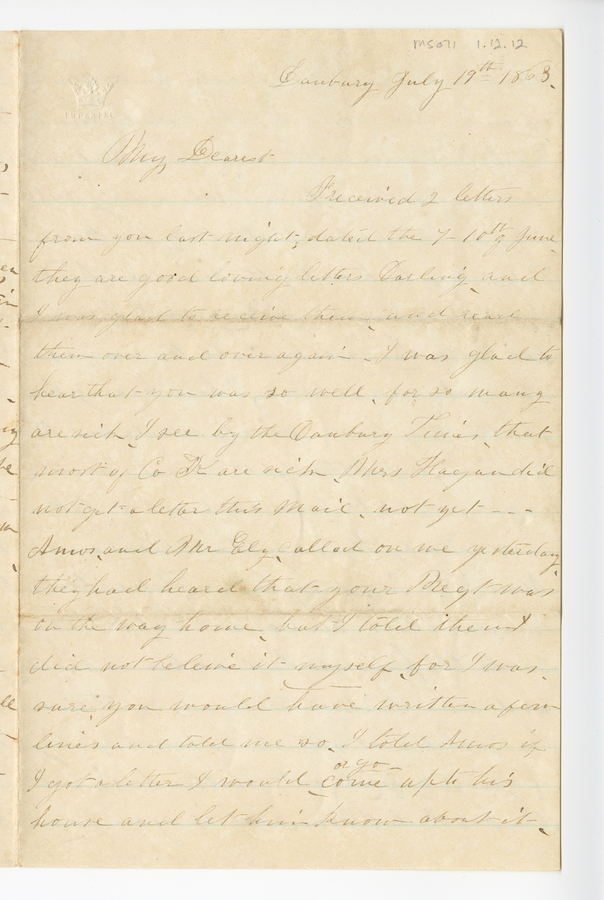 MS071 1.12.12
IMPERIAL
Danbury July 19th 1863.
My Dearest
I received 2 letters
from you last night, dated the 7-10th of June
they are good loving letters Darling, and
I was glad to receive them, and read
them over and over again. I was glad to
hear that you was so well, for so many
are sick, I see by the Danbury Times, that
most of Co K are sick. Mrs Hagan did
not get a letter this Mail, not yet - - -
Amos, and Mr Ely, called on me yesterday,
they had heard that your Regt was
on the way home, but I told them I
did not beleive it myself, for I was
sure, you would have written a few
lines and told me so, I told Amos if
or go
I got a letter I would come up to his
house and let him know about it.